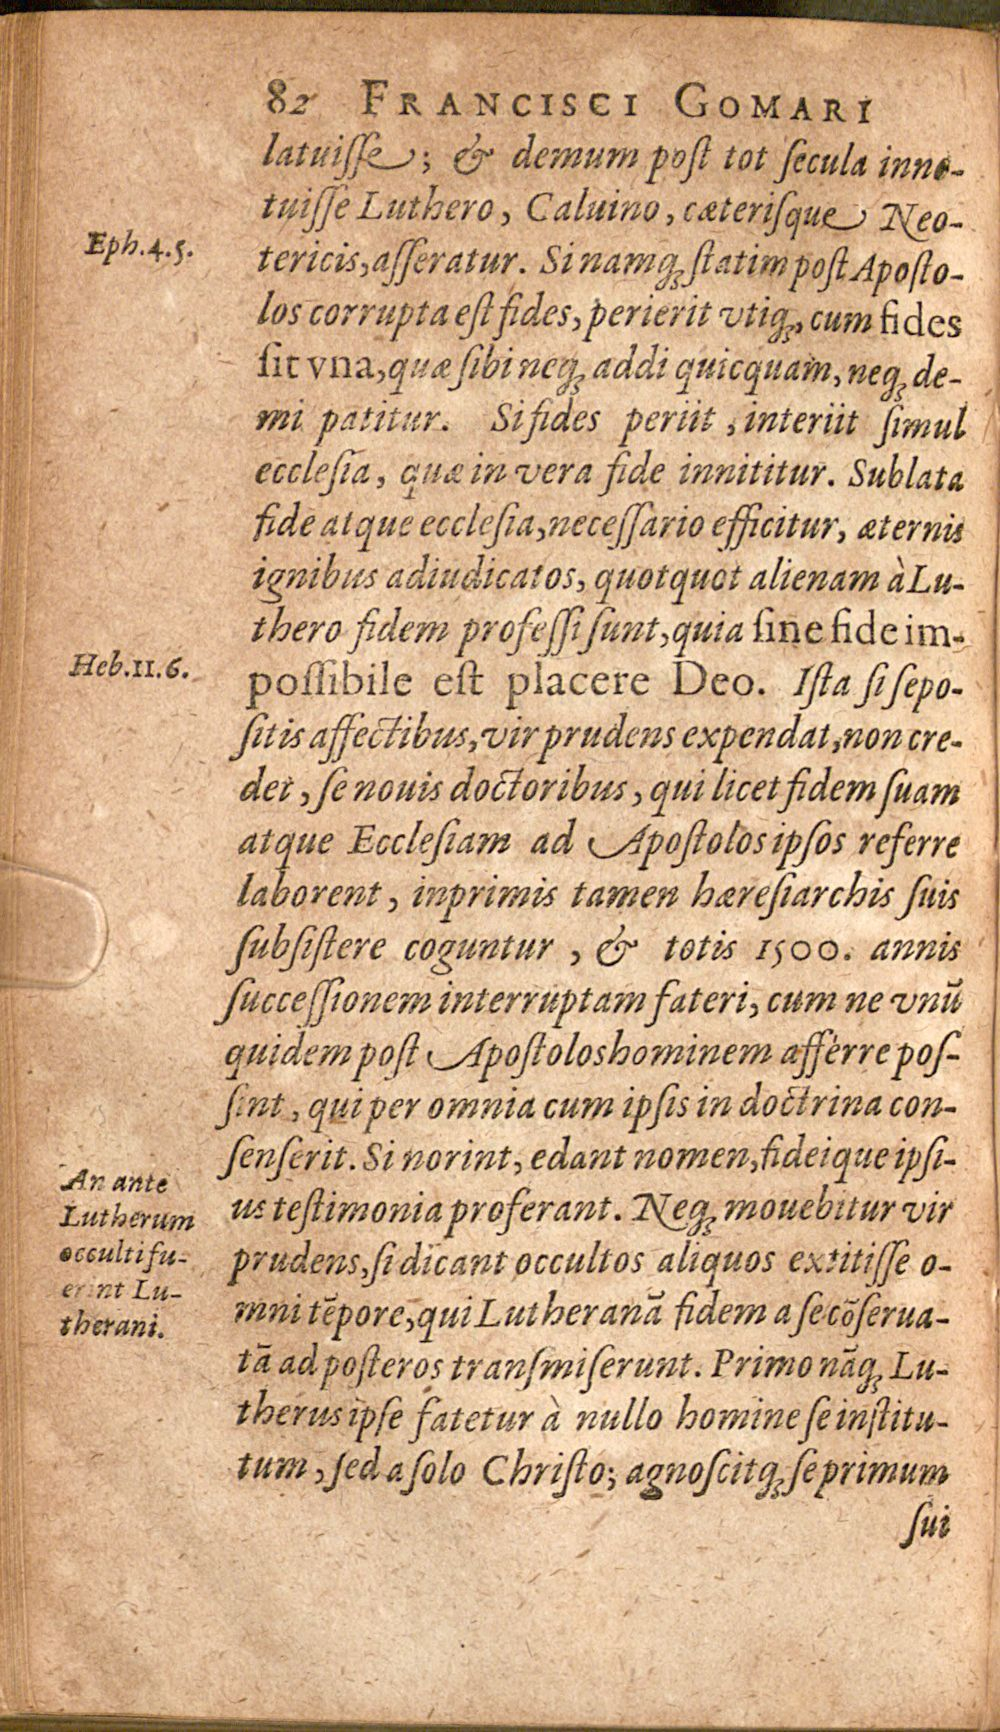 82 FRANCISCI GOMARI
latuiſſe; & demum poſt tot ſecula inno-
tuiſſe Luthero, Caluino, cæteriſque Neo-
Eph. 4. 5.
tericis, aſſeratur. Si namq̃ ſtatim poſt Apoſto-
los corrupta eſt fides, perierit vtiq̃, cum fides
ſit vna, quæ ſibi neq̃ addi quicquam, neq̃ de-
mi patitur. Si fides periit, interiit ſimul
eccleſia, quæ in vera fide innititur. Sublata
fide atque eccleſia, neceſſario efficitur, æternis
ignibus adiudicatos, quotquot alienam à Lu-
thero fidem profeſſi ſunt, quia ſine fide im-
Heb. 11. 6.
poſſibile eſt placere Deo. Iſta ſi ſepo-
ſitis affectibus, vir prudens expendat, non cre-
det, ſe nouis doctoribus, qui licet fidem ſuam
atque Eccleſiam ad Apoſtolos ipſos referre
laborent, inprimis tamen hæreſiarchis ſuis
ſubſiſtere coguntur, & totis 1500. annis
ſucceſſionem interruptam fateri, cum ne vnũ
quidem poſt Apoſtolos hominem afferre poſ-
ſint, qui per omnia cum ipſis in doctrina con-
ſenſerit. Si norint, edant nomen, fideique ipſi-
us teſtimonia proferant. Neq̃ mouebitur vir
prudens, ſi dicant occultos aliquos extitiſſe o-
mni tẽpore, qui Lutheranã fidem a ſe cõſerua-
tã ad poſteros tranſmiſerunt. Primo nãq̃ Lu-
therus ipſe fatetur à nullo homine ſe inſtitu-
tum, ſed a ſolo Chriſto; agnoſcitq̃ ſe primum
ſui
An ante
Lutherum
occulti fu-
erint Lu-
therani.